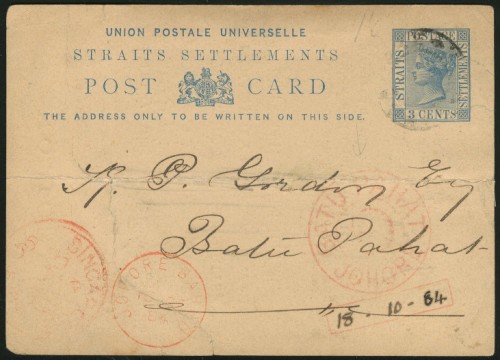 UNION POSTALE UNIVERSELLE
STRAITS SETTLEMENTS
POST CARD
THE ADDRESS ONLY TO BE WRITTEN ON THIS SIDE.
POSTAGE
STRAITS
SETTLEMENTS
3 CENTS
P. Gordon Esq
Batu Pahat
JOHORE
18-10-84